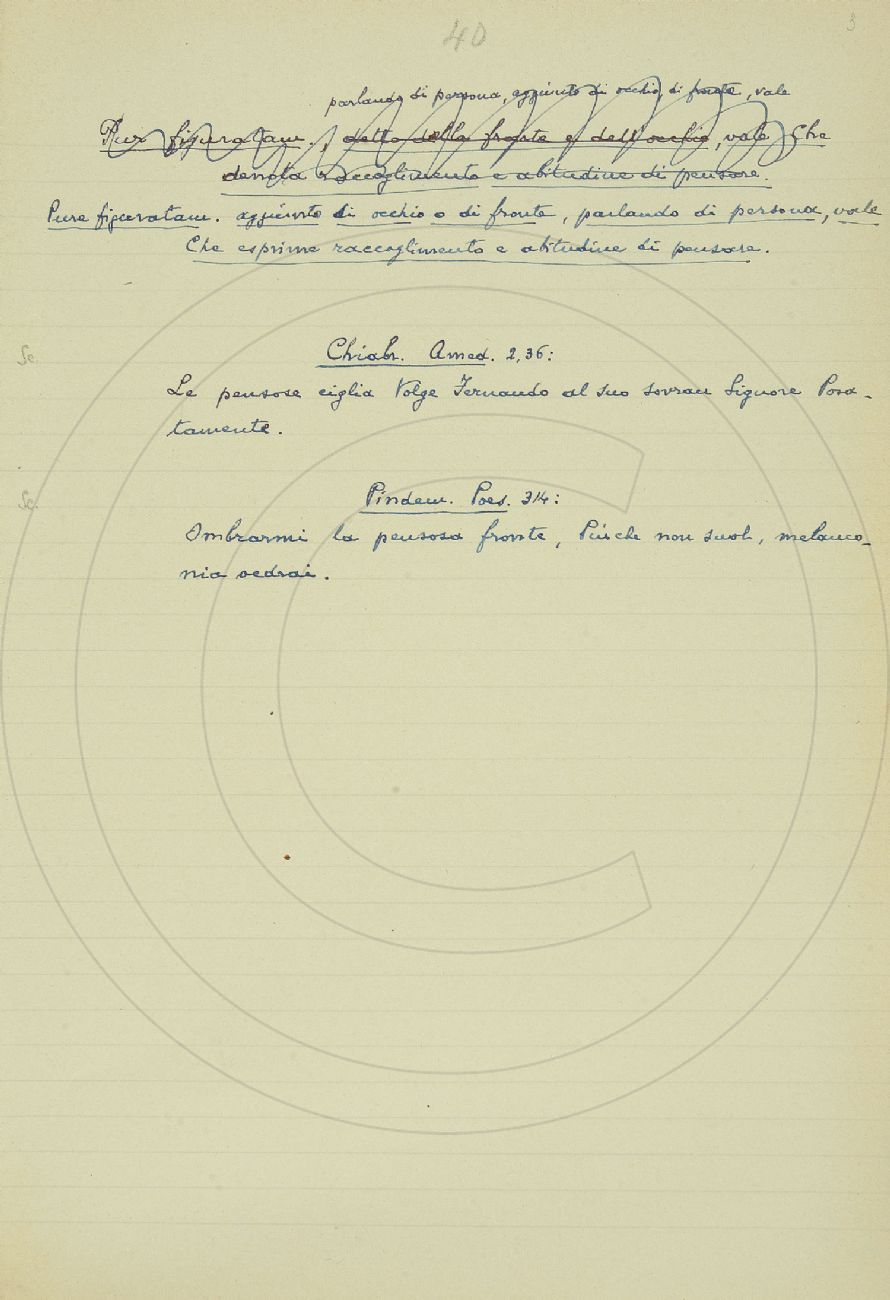 40
3
parlando di persona, aggiunto di occhio, di fronte, vale
Pur figuratam., detto della fronte e dell'occhio, vale Che
denota raccoglimento e abitudine di pensare.
Pure figuratam. aggiunto di occhio o di fronte, parlando di persona, vale
Che esprime raccoglimento e abitudine di pensare.
Sc. Chiabr. Amed. 2, 36:
Le pensose ciglia Volge Fernando al suo sovran Signore Posa-
tamente.
Sc. Pindem. Poes. 314:
Ombrarmi la pensosa fronte, Più che non suoli, melanco-
nia vedrai.